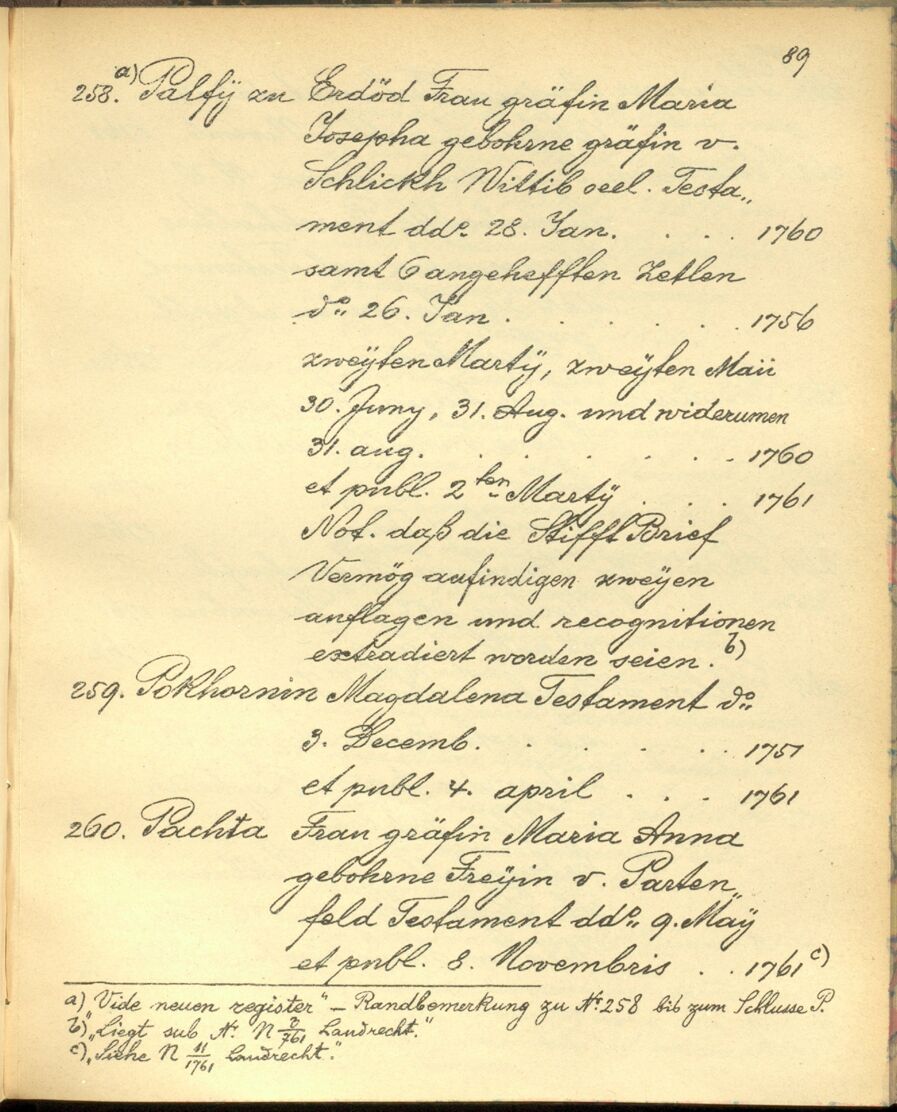 89
258. a) Palfÿ zu Erdöd Frau gräfin Maria
Josepha gebohrne gräfin v.
Schlickh Wittib seel. Testa„
ment ddo. 28. Jan. . . . 1760
samt 6 angehefften Zetlen
do„ 26. Jan . . . . . . 1756
zweÿten Martÿ, zweÿten Maii
30. Juny, 31. Aug. und widerumen
31. aug. . . . . . . 1760
et publ. 2ten Martÿ . . . 1761
Not. daß die Stifft Brief
Vermög aufindigen zweÿen
auflagen und recognitionen
extradiert worden seien. b)
259. Pokhornin Magdalena Testament do„
3. Decemb. . . . . . . 1751
et publ. 4. april . . . 1761
260. Pachta Frau gräfin Maria Anna
gebohrne Freÿin v. Parten„
feld Testament ddo„ 9. Maÿ
et publ. 8. Novembris . . 1761 c)
a) Vide neuen register“ – Randbemerkung zu No. 258 bis zum Schlusse P.
b) „Liegt sub No. N 2/761 Landrecht.“
c) „Siehe N 11/1761 Landrecht.“